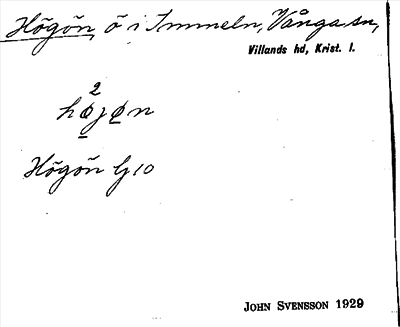 Högön, ö i Immeln, Vånga sn,
Villands hd, Krist. l.
2
højøn
Högön G 10
JOHN SVENSSON 1929